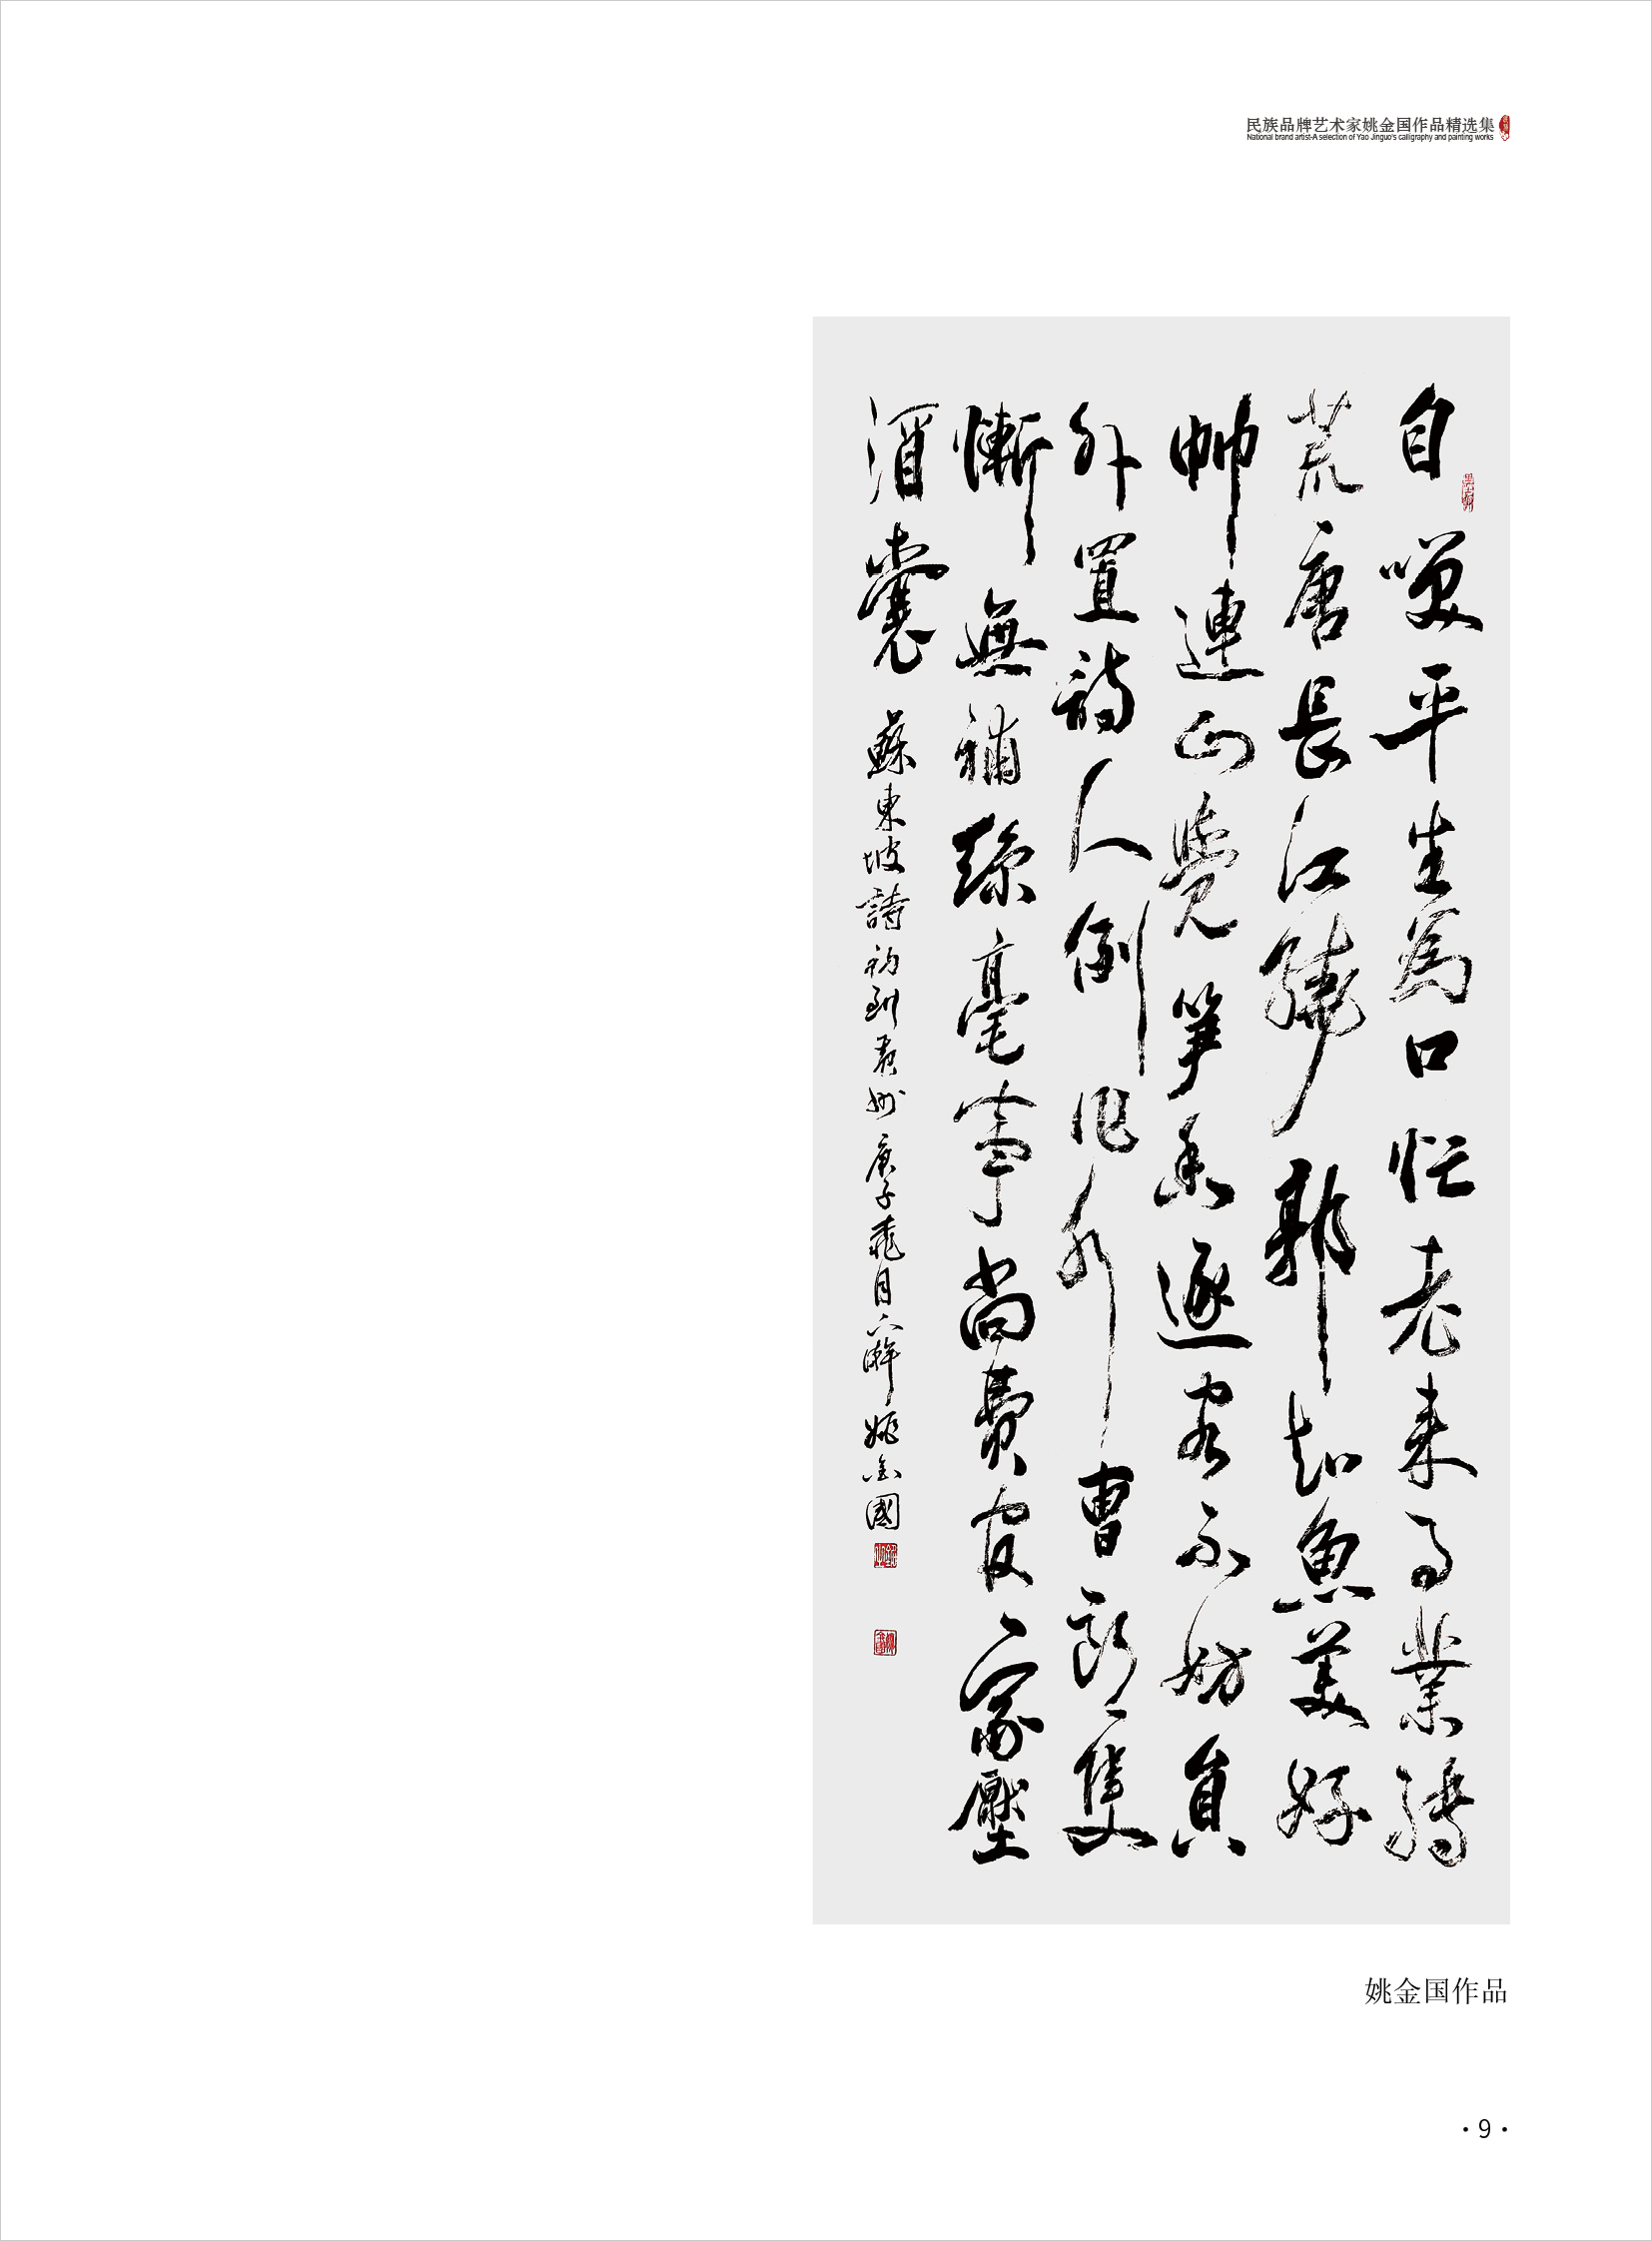 民族品牌艺术家姚金国作品精选集
National brand artist-A selection of Yao Jinguo's calligraphy and painting works
自咲平生為口忙老来事業轉
荒唐長江繞郭知魚美好
竹連山覺笋香逐客不妨員
外置詩人例作水曹郎隻
慚無補絲毫事尚費官家壓
酒囊 蘇東坡詩初到黄州 庚子桃月下澣 姚金國
姚金国作品
·9·